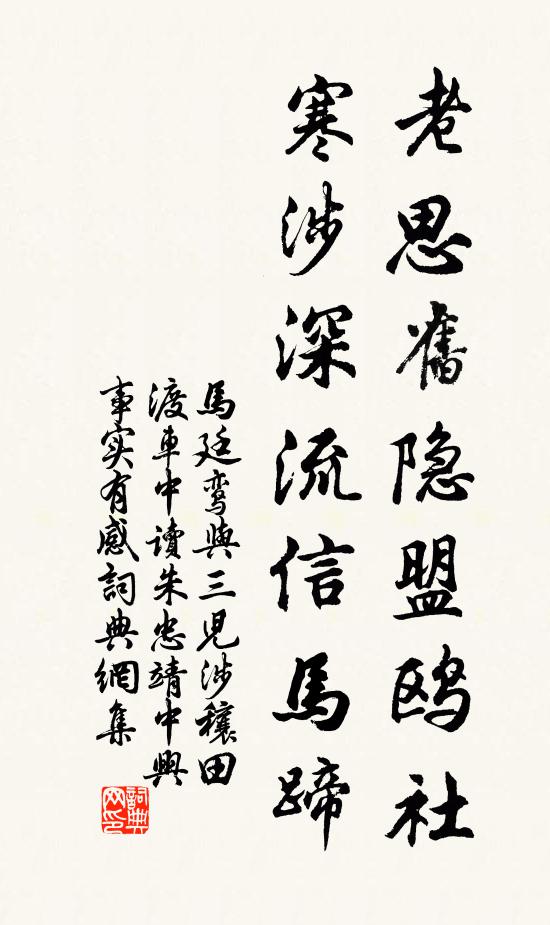 老思舊隐盟鸥社
寒涉深流信馬蹄
馬廷鸾與三児涉穰田
渡車中讀朱忠靖中興
事实有感詞典網集
詞典
网印